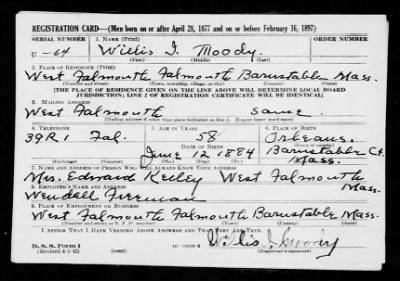 REGISTRATION CARD—(Men born on or after April 28, 1877 and on or before February 16, 1897)
SERIAL NUMBER 1. NAME (Print) ORDER NUMBER
U -64 Willis I. Moody.
(First) (Middle) (Last)
2. PLACE OF RESIDENCE (Print)
West Falmouth Falmouth Barnstable Mass.
(Number and street) (Town, township, village, or city) (County) (State)
[THE PLACE OF RESIDENCE GIVEN ON THE LINE ABOVE WILL DETERMINE LOCAL BOARD
JURISDICTION; LINE 2 OF REGISTRATION CERTIFICATE WILL BE IDENTICAL]
3. MAILING ADDRESS
West Falmouth same.
[Mailing address if other than place indicated on line 2. If same insert word same]
4. TELEPHONE 5. AGE IN YEARS 6. PLACE OF BIRTH
39R1 Fal. 58 Orleans.
DATE OF BIRTH (Town or county)
June 12 1884 Barnstable Ct.
Mass.
(Exchange) (Number) (Mo.) (Day) (Yr.) (State or country)
7. NAME AND ADDRESS OF PERSON WHO WILL ALWAYS KNOW YOUR ADDRESS
Mrs. Edward Kelley West Falmouth
Mass.
8. EMPLOYER'S NAME AND ADDRESS
Wendall Freeman
9. PLACE OF EMPLOYMENT OR BUSINESS
West Falmouth Falmouth Barnstable Mass.
(Number and street or R. F. D. number) (Town) (County) (State)
I AFFIRM THAT I HAVE VERIFIED ABOVE ANSWERS AND THAT THEY ARE TRUE.
D. S. S. Form 1 Willis I. Moody
(Revised 4-1-42) (over) (Registrant's signature)